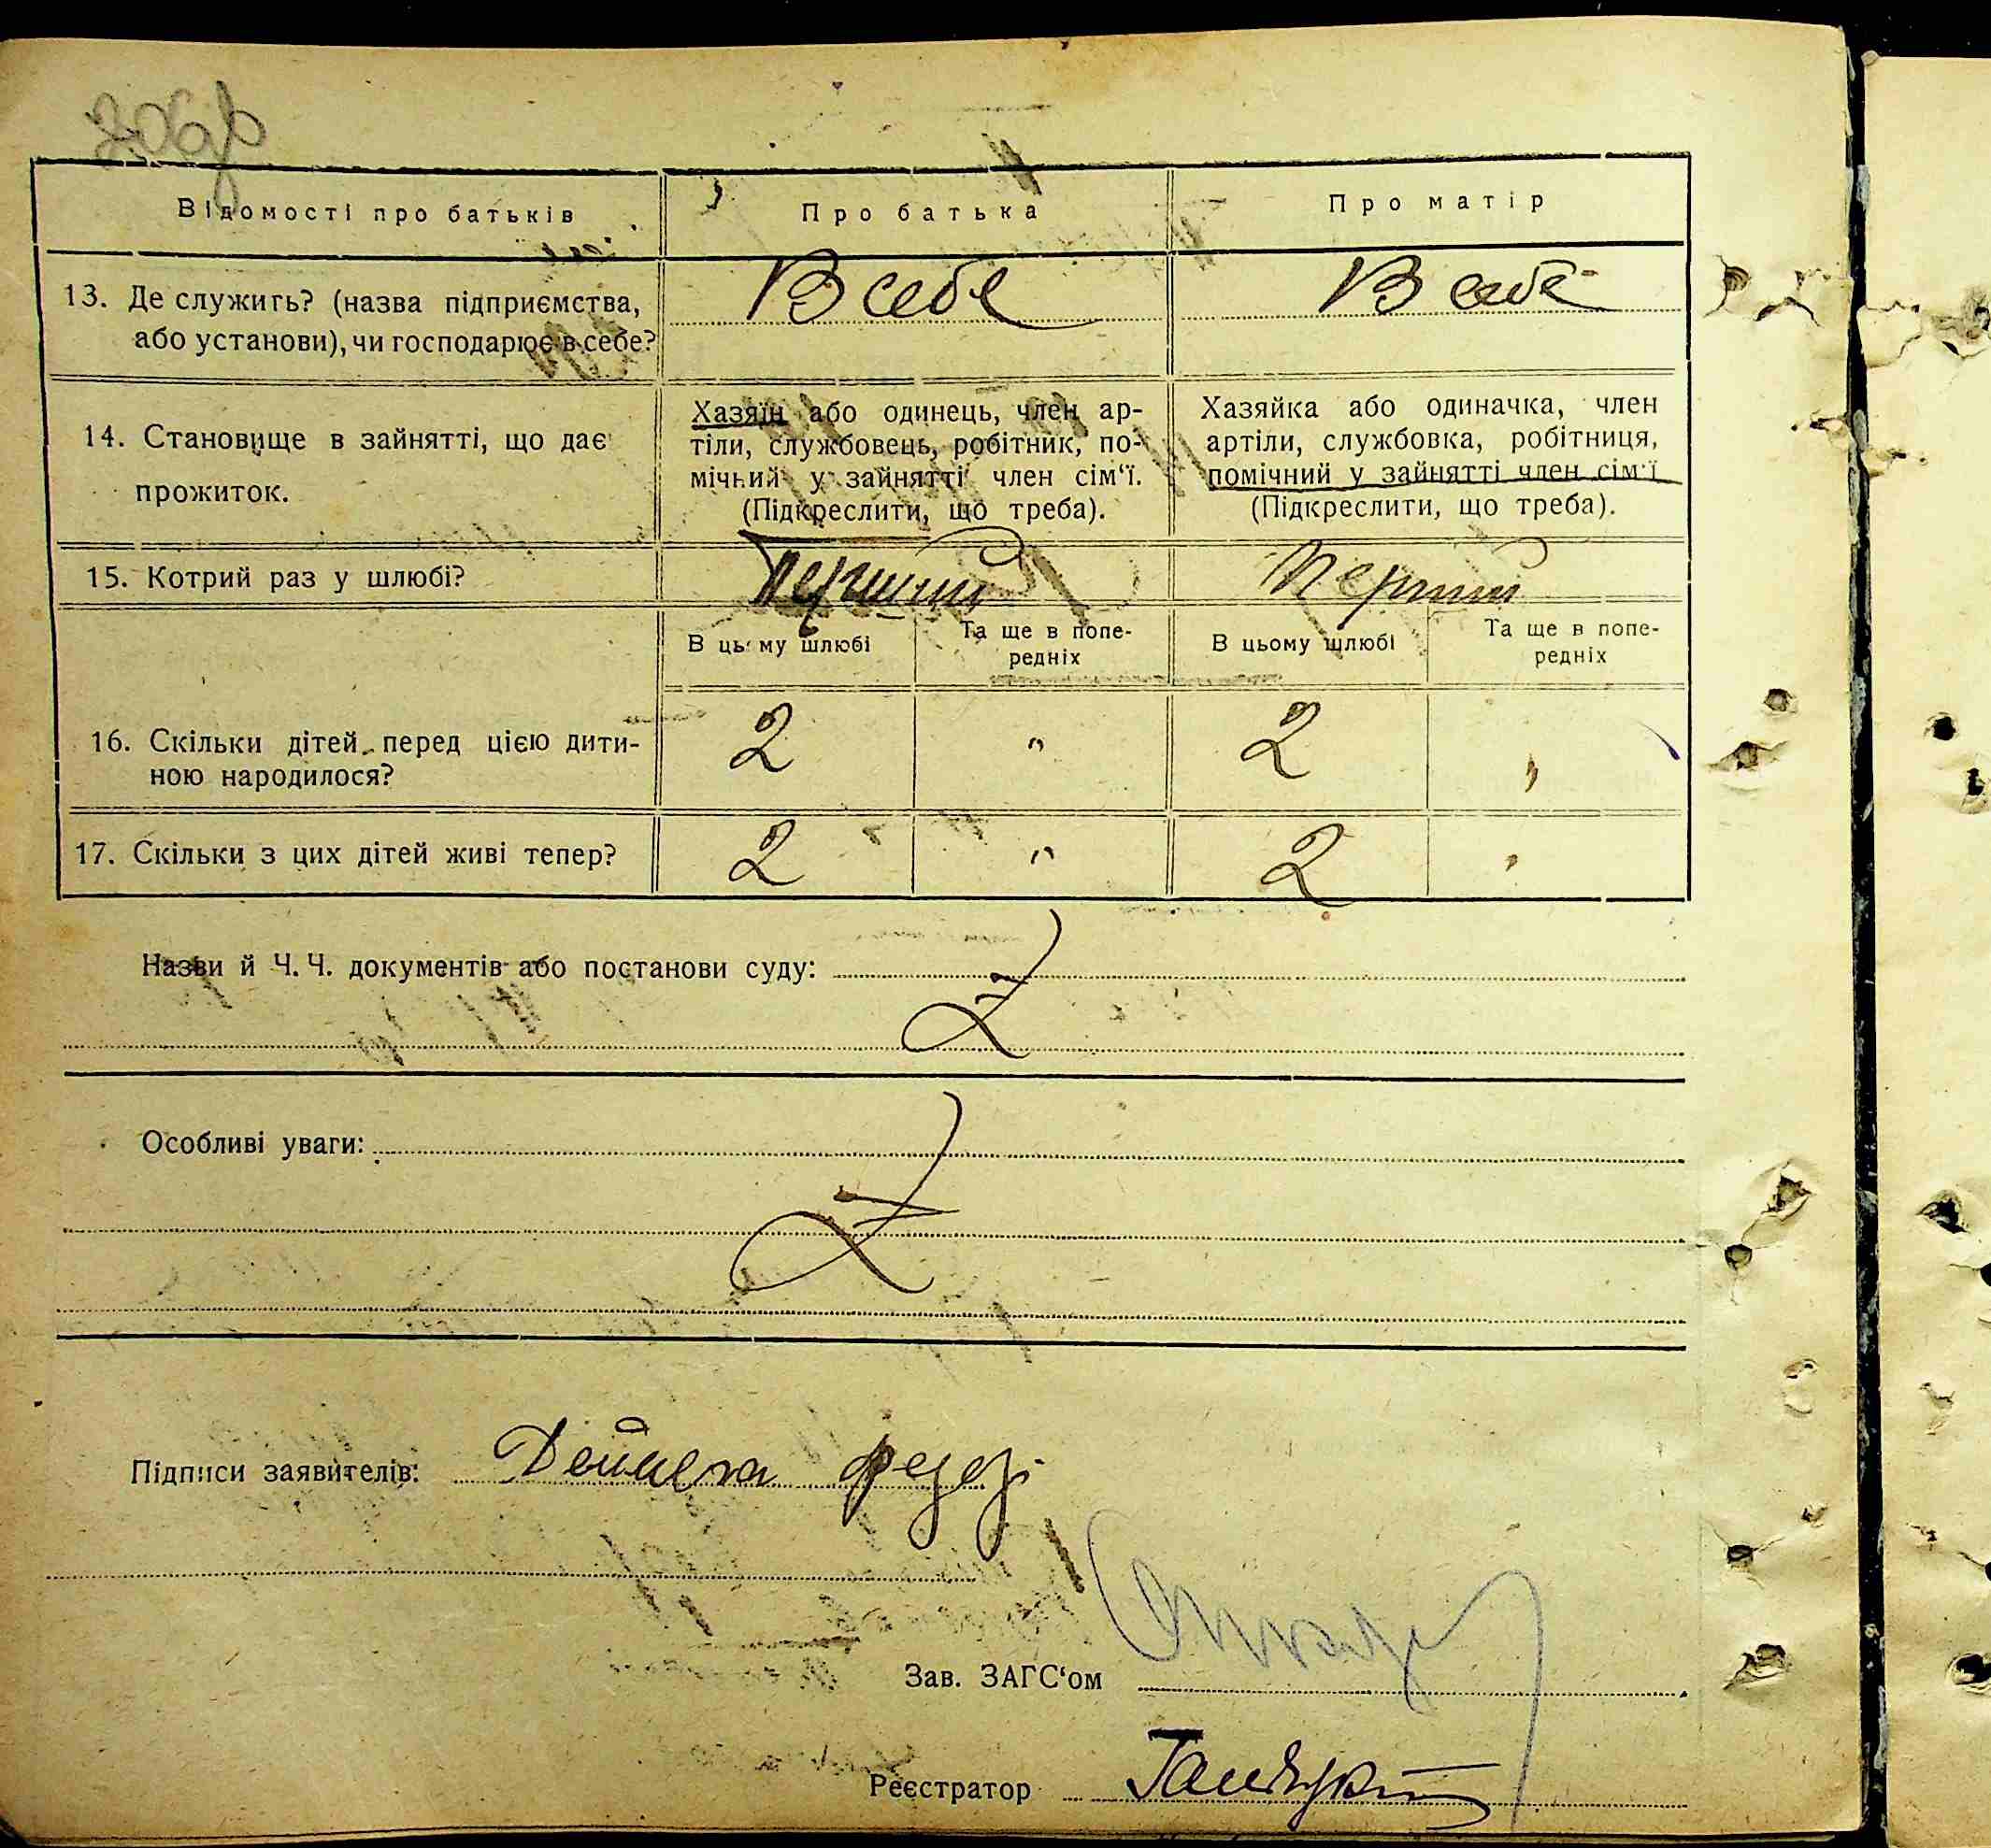 Відомості про батьків
Про батька
Про матір
13. Де служить? (назва підприємства,
або установи), чи господарює в себе?
В себе
В себе
14. Становище в зайнятті, що дає
прожиток.
Хазяїн або одинець, член ар-
тіли, службовець, робітник, по-
мічний у зайнятті член сім‘ї.
(Підкреслити, що треба).
Хазяйка або одиначка, член
артіли, службовка, робітниця,
помічний у зайнятті член сім‘ї
(Підкреслити, що треба).
15. Котрий раз у шлюбі?
Перший
Перший
В цьому шлюбі
Та ще в попе-
редніх
В цьому шлюбі
Та ще в попе-
редніх
16. Скільки дітей перед цією дити-
ною народилося?
2
"
2
"
17. Скільки з цих дітей живі тепер?
2
"
2
"
Назви й Ч. Ч. документів або постанови суду:
Особливі уваги:
Підписи заявителів:
Зав. ЗАГС‘ом
Реєстратор